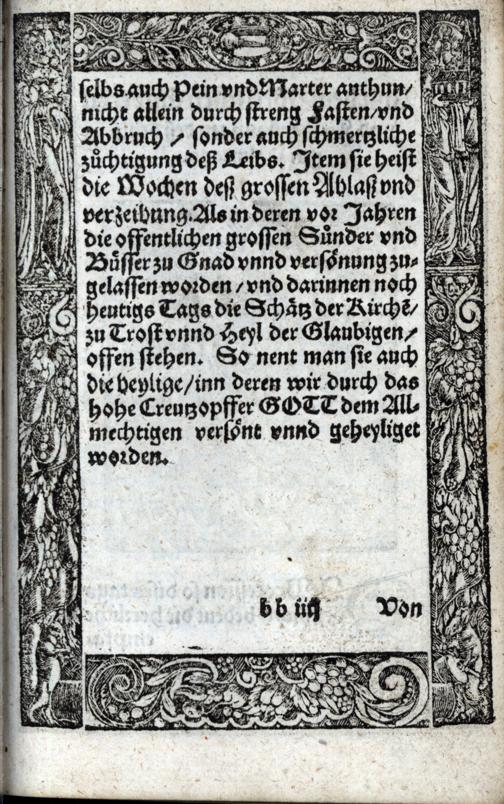 selbs auch Pein vnd Marter anthun/
nicht allein durch streng Fasten/vnd
Abbruch / sonder auch schmertzliche
züchtigung deß Leibs. Item sie heist
die Wochen deß grossen Ablaß vnd
verzeihung. Als in deren vor Jahren
die offentlichen grossen Sünder vnd
Büsser zu Gnad vnnd versönung zu-
gelassen worden / vnd darinnen noch
heutigs Tags die Schätz der Kirchē/
zu Trost vnnd Heyl der Glaubigen/
offen stehen. So nent man sie auch
die heylige/inn deren wir durch das
hohe Creutzopffer GOTT dem All-
mechtigen versönt vnnd geheyliget
worden.
b b iiij Von